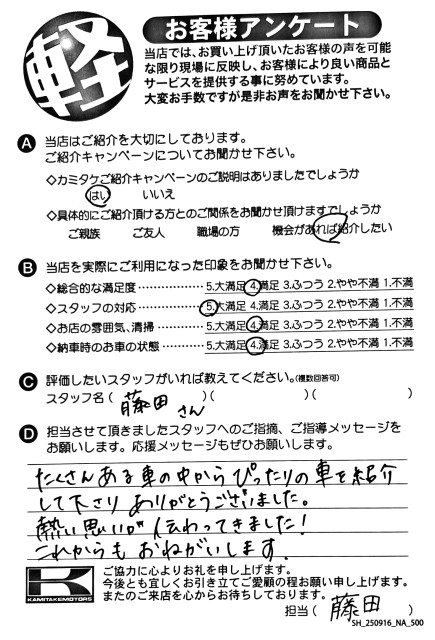 軽
お客様アンケート
当店では、お買い上げ頂いたお客様の声を可能
な限り現場に反映し、お客様により良い商品と
サービスを提供する事に努めています。
大変お手数ですが是非お声をお聞かせ下さい。
A 当店はご紹介を大切にしております。
ご紹介キャンペーンについてお聞かせ下さい。
◇カミタケご紹介キャンペーンのご説明はありましたでしょうか
はい いいえ
◇具体的にご紹介頂ける方とのご関係をお聞かせ頂けますでしょうか
ご親族 ご友人 職場の方 機会があれば紹介したい
B 当店を実際にご利用になった印象をお聞かせ下さい。
◇総合的な満足度 ‥‥‥‥‥‥ 5.大満足 4.満足 3.ふつう 2.やや不満 1.不満
◇スタッフの対応 ‥‥‥‥‥‥ 5.大満足 4.満足 3.ふつう 2.やや不満 1.不満
◇お店の雰囲気、清掃 ‥‥‥‥ 5.大満足 4.満足 3.ふつう 2.やや不満 1.不満
◇納車時のお車の状態 ‥‥‥‥ 5.大満足 4.満足 3.ふつう 2.やや不満 1.不満
C 評価したいスタッフがいれば教えてください。(複数回答可)
スタッフ名 ( 藤田さん )( )( )
D 担当させて頂きましたスタッフへのご指摘、ご指導メッセージを
お願いします。応援メッセージもぜひお願いします。
たくさんある車の中からぴったりの車を紹介
して下さりありがとうございました。
熱い思いが伝わってきました!
これからもおねがいします.
KAMITAKE MOTORS
ご協力に心よりお礼を申し上げます。
今後とも宜しくお引き立てご愛顧の程お願い申し上げます。
またのご来店を心からお待ちしております。
担当 ( 藤田 )
SH_250916_NA_500